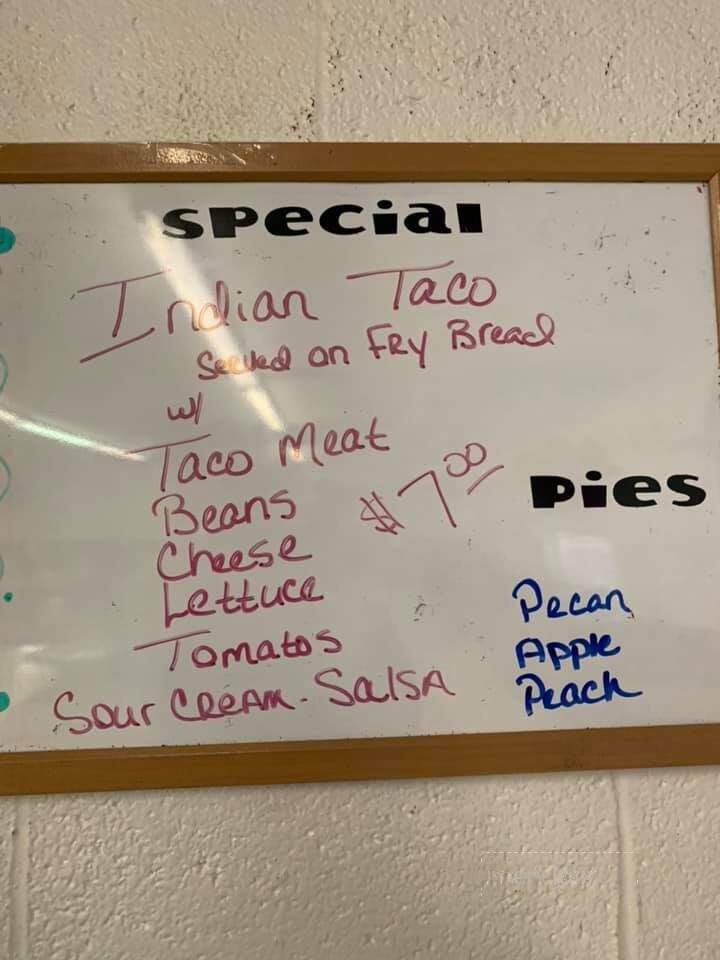 Special
Indian Taco
Served on Fry Bread
w/
Taco Meat
Beans
$7.00
Cheese
Lettuce
Tomatos
Sour Cream - Salsa
Pies
Pecan
Apple
Peach